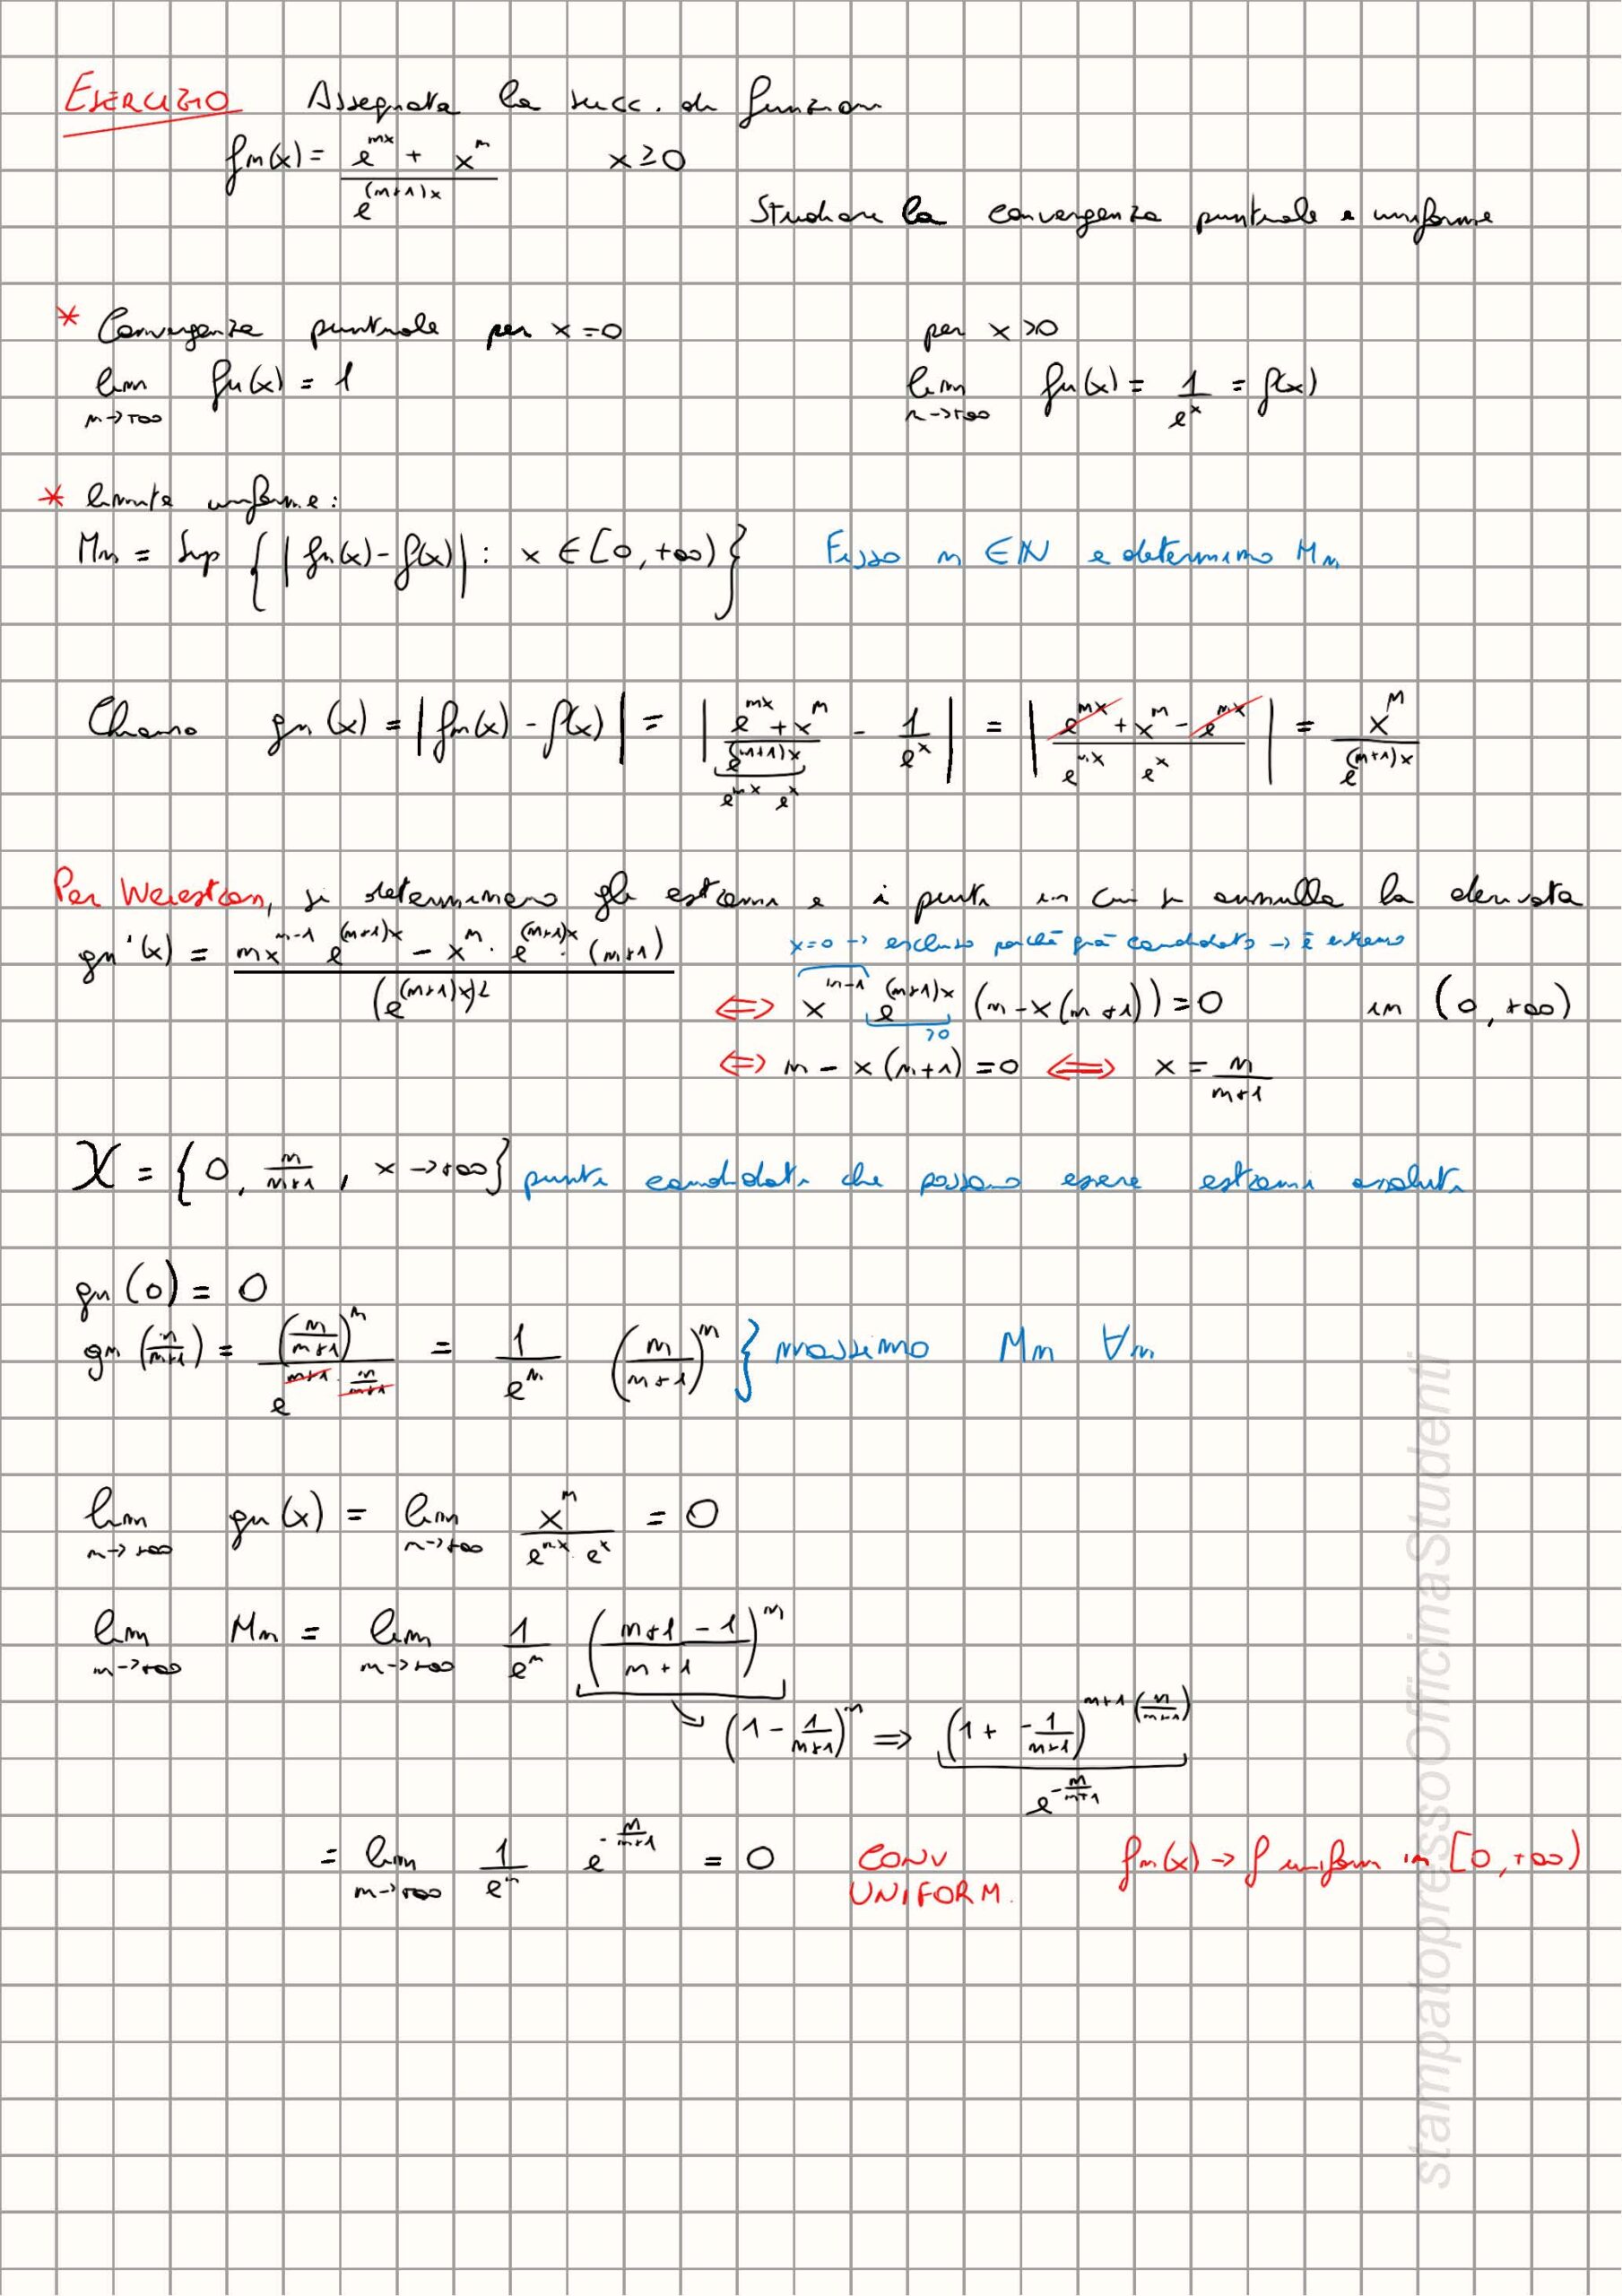 ESERCIZIO Assegnata la succ. di funzioni
fn(x) = (e^{nx} + x^n) / e^{(n+1)x} x ≥ 0
Studiare la convergenza puntuale e uniforme
* Convergenza puntuale per x = 0 per x > 0
lim_{n→+∞} fn(x) = 1 lim_{n→+∞} fn(x) = 1/e^x = f(x)
* limite uniforme:
Mn = Sup { |fn(x) - f(x)| : x ∈ [0, +∞) } Fisso n ∈ ℕ e determino Mn
Chiamo gn(x) = |fn(x) - f(x)| = | (e^{nx} + x^n) / e^{(n+1)x} - 1/e^x | = | (e^{nx} + x^n - e^{nx}) / (e^{nx} e^x) | = x^n / e^{(n+1)x}
e^{nx} e^x
Per Weiestras, si determinano gli estremi e i punti in cui si annulla la derivata
x=0 → escluso perché già candidato → è estremo
gn'(x) = (n x^{n-1} e^{(n+1)x} - x^n · e^{(n+1)x} · (n+1)) / (e^{(n+1)x})^2 ⇔ x^{n-1} e^{(n+1)x} (n - x(n+1)) = 0 in (0, +∞)
>0
⇔ n - x(n+1) = 0 ⇔ x = n/(n+1)
X = {0, n/(n+1), x → +∞} punti candidati che possono essere estremi assoluti
gn(0) = 0
gn(n/(n+1)) = (n/(n+1))^n / e^{n+1 · n/(n+1)} = 1/e^n (n/(n+1))^n } massimo Mn ∀n
lim_{n→+∞} gn(x) = lim_{n→+∞} x^n / (e^{nx} · e^x) = 0
lim_{n→+∞} Mn = lim_{n→+∞} 1/e^n ((n+1-1)/(n+1))^n
(1 - 1/(n+1))^n ⇒ (1 + -1/(n+1))^{n+1 (n/(n+1))}
e^{-n/(n+1)}
= lim_{n→+∞} 1/e^n e^{-n/(n+1)} = 0 CONV fn(x) → f uniform in [0, +∞)
UNIFORM.
stampatopressoOfficinaStudenti